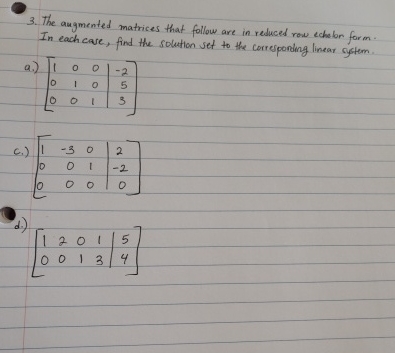 3. The augmented matrices that follow are in reduced row echelon form.
In each case, find the solution set to the corresponding linear system.
a.) [1 0 0 | -2
0 1 0 | 5
0 0 1 | 3]
c.) [1 -3 0 | 2
0 0 1 | -2
0 0 0 | 0]
d.)
[1 2 0 1 | 5
0 0 1 3 | 4]